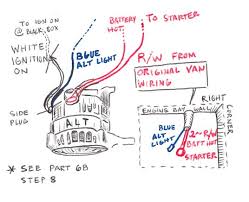 TO IGN ON
@ BLACK BOX
WHITE
IGNITION
ON
BLUE
ALT LIGHT
BATTERY
HOT
TO STARTER
R/W FROM
ORIGINAL VAN
WIRING
SIDE
PLUG
ALT
* SEE PART 6B
STEP 8
ENGINE BAY WALL
RIGHT
CORNER
BLUE
ALT
LIGHT
2~R/W
BATT HOT
STARTER